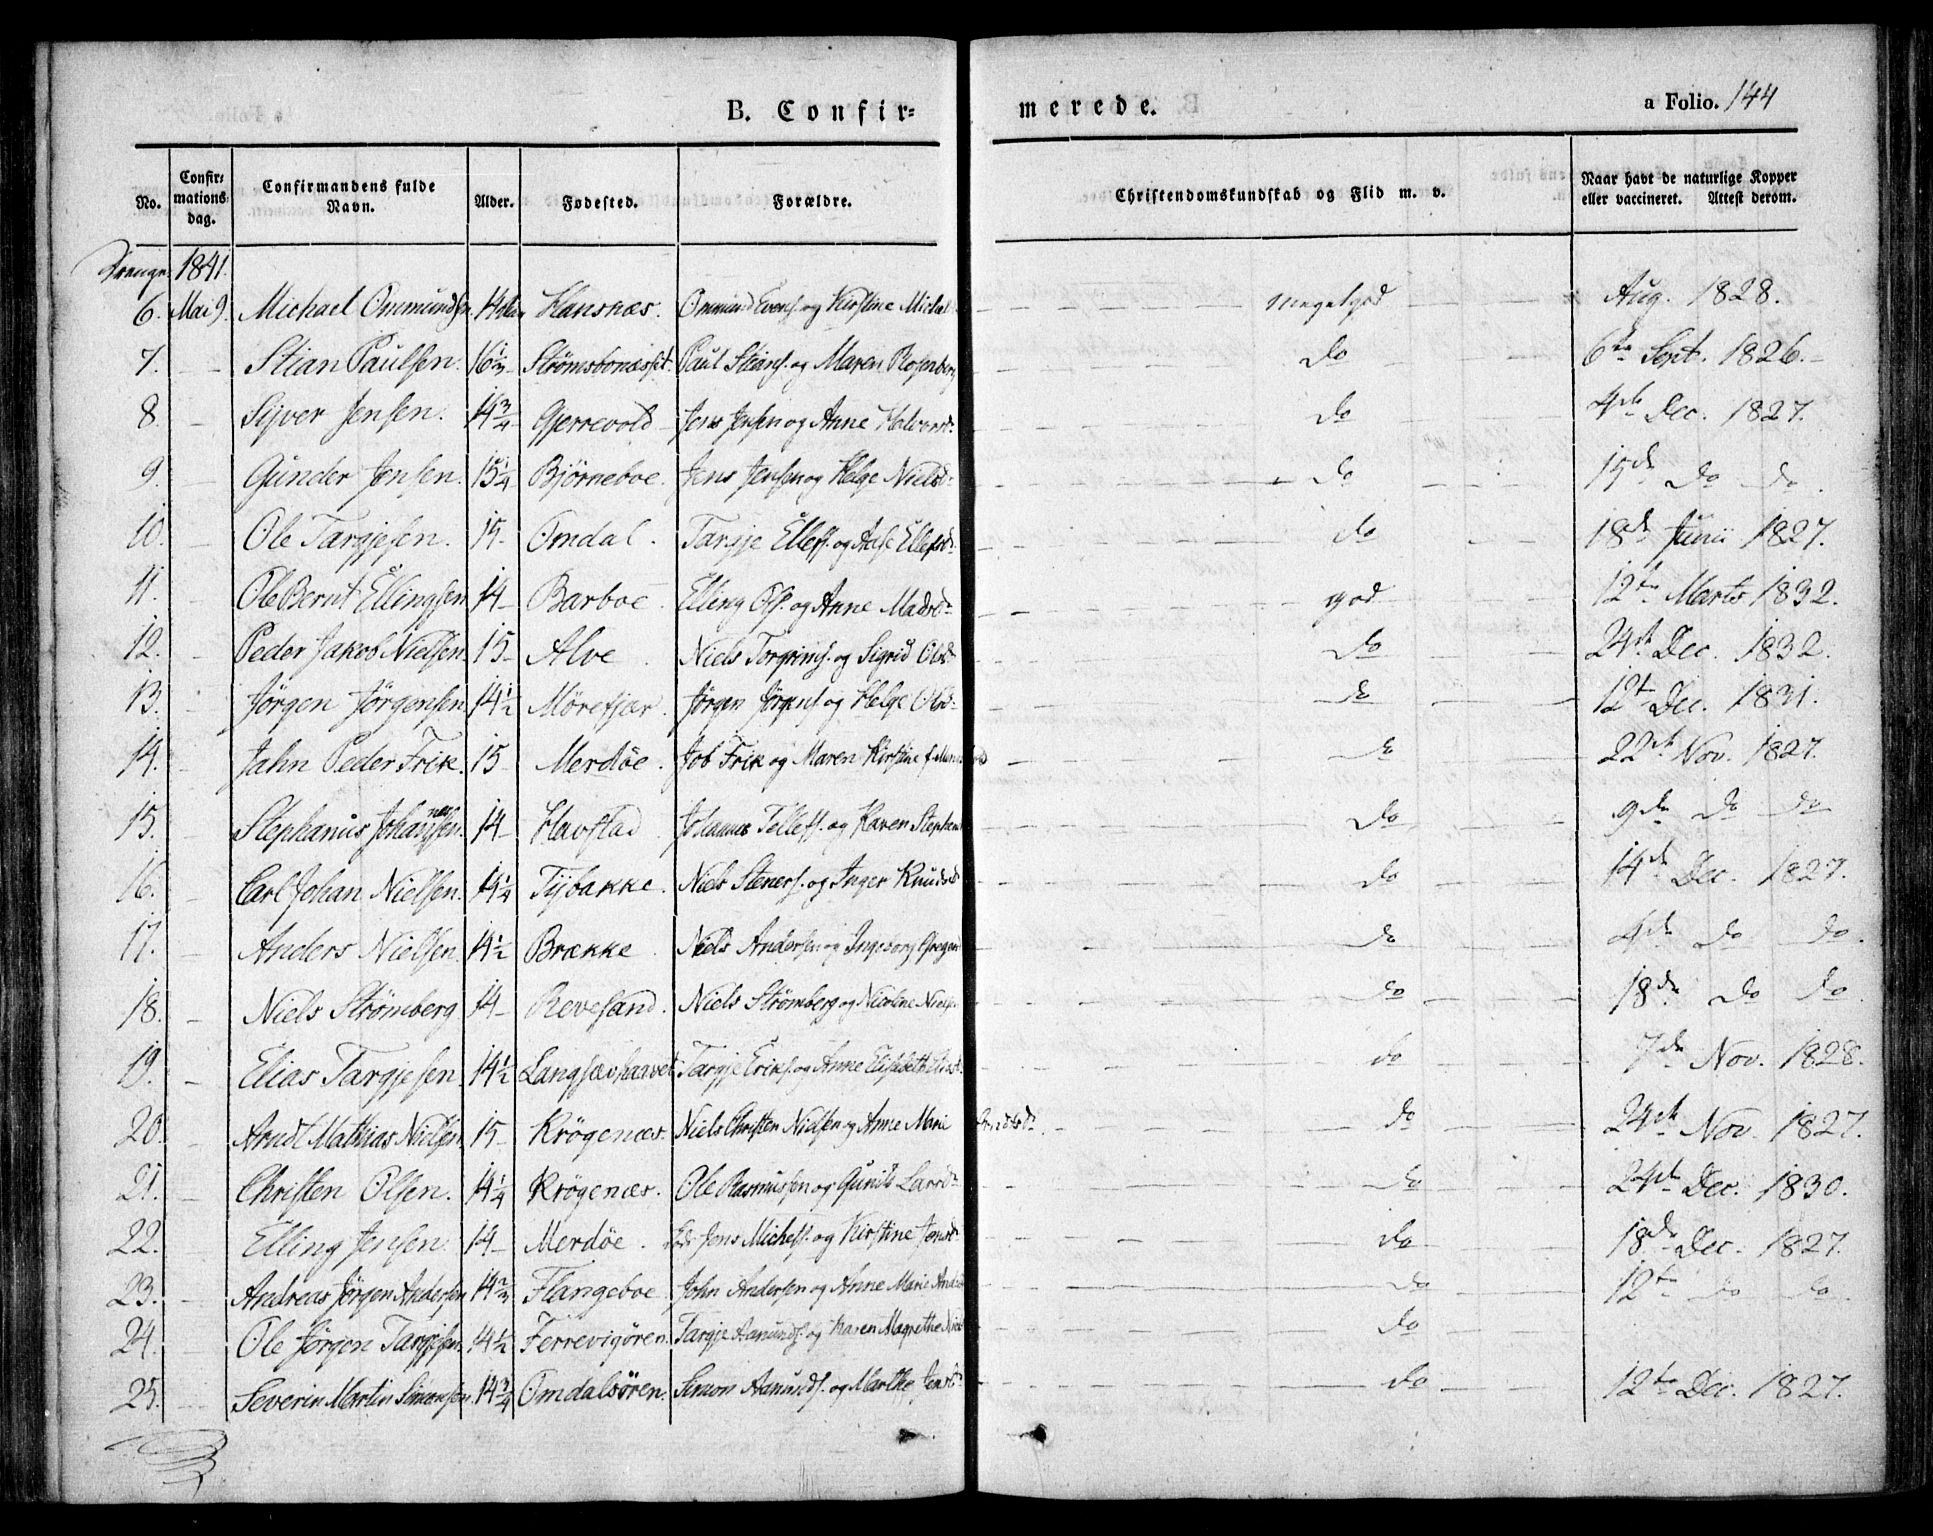 B. Confir= merede. a Folio. 144
No. Confir= mations= dag. Confirmandens fulde Navn. Alder. Fødested. Forældre. Christendomskundskab og Flid m. v. Naar havt de naturlige Kopper eller vaccineret. Attest derom.
Drenge 1841.
6. Mai 9. Michael Ommundsen. 14 Hansnæs. Ommund Evens. og Kirstine Michal megetgod Aug. 1828.
7. Stian Paulsen. 16 1/3 Strømsbonæsset. Paul Stians. og Maren Rosenberg do 6te Sept. 1826.
8. Syver Jensen. 14 3/4 Gjerrevold Jens Jensen og Anne Halvorsd. do 4de Dec. 1827.
9. Gunder Jensen. 15 1/4 Bjørneboe. Jens Jensen og Helge Nielsd. do 15de do do.
10. Ole Targjesen. 15 Omdal. Targje Ellefs. og Aase Ellefsd. do 18de Junii 1827.
11. Ole Bernt Ellingsen 14 Barboe. Elling Ols. og Anne Madsd. god 12te Marts 1832.
12. Peder Jakob Nielsen. 15 Alve. Niels Torgrims. og Sigrid Olsd. do 24de Dec. 1832.
13. Jørgen Jørgensen 14 1/2 Mørefjær. Jørgen Jørgens. og Helge Olsd. do 12te Dec. 1831.
14. Jahn Peder Frik. 15 Merdöe. Job Frik og Maren Kirstine do 22de Nov. 1827.
15. Stephanus Johannessen. 14 Havstad Johannes Tellefs. og Karen Stephans do 9de do do
16. Carl Johan Nielsen. 14 1/4 Tÿbakke. Niels Steners. og Inger Knudsd do 14de Dec. 1827.
17. Anders Nielsen. 14 1/2 Brække. Niels Andersen og Ingeborg Gregers do 4de do do.
18. Niels Strømberg 14 Revesand. Niels Strømberg og Nicoline Niels do 18de do do.
19. Elias Targjesen. 14 1/2 Langsævhaavet Targje Eriks. og Anne Elisabeth Eliasd. do 7de Nov. 1828.
20. Arndt Mathias Nielsen. 15 Krögenæs. Niels Christen Nielsen og Anne Marie Arndtsd. do 24de Nov. 1827.
21. Christen Olsen. 14 1/4 Krögenæs. Ole Rasmussen og Gunild Larsd. do 24de Dec. 1830.
22. Elling Jensen 14 Merdöe. Jens Michels. og Kirstine Jensd. do 18de Dec. 1827.
23. Andreas Jørgen Andersen 14 2/3 Flangeboe John Andersen og Anne Marie Anders do 12te do do.
24. Ole Jørgen Targjesen. 14 1/2 Ferrevigören. Targje Aanunds. og Karen Magrethe Niels do
25. Severin Martin Simonsen. 14 3/4 Omdalsören. Simon Aanunds. og Marthe Jensd. do 12te Dec. 1827.